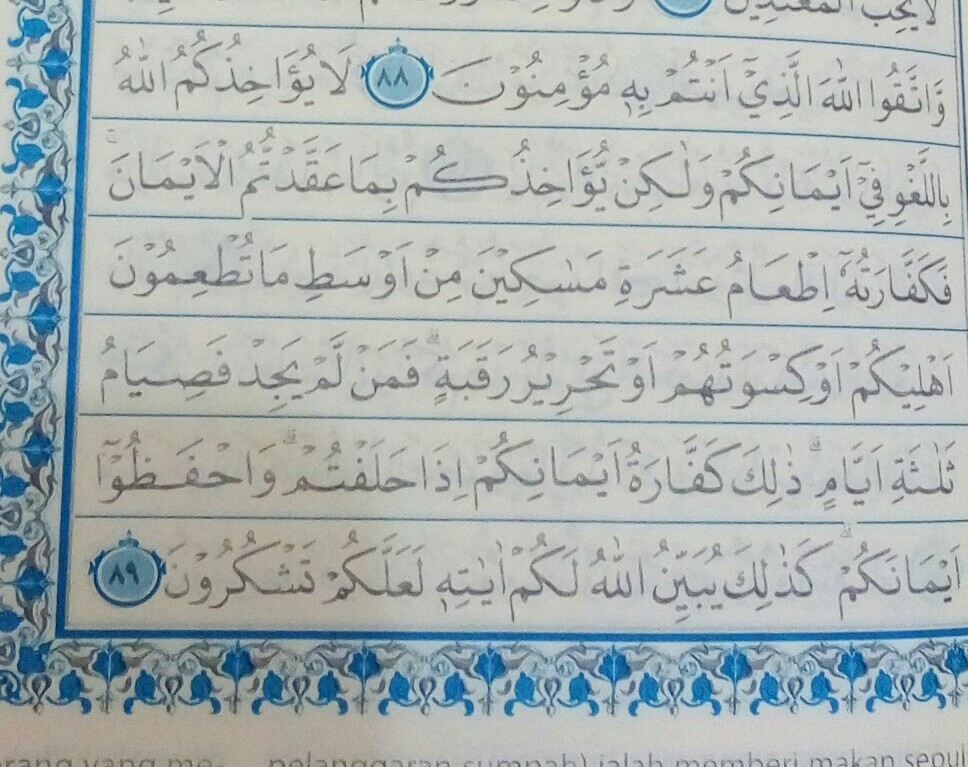 لَا يُحِبُّ الْمُعْتَدِيْنَ
وَّاتَّقُوا اللّٰهَ الَّذِيْٓ اَنْتُمْ بِهٖ مُؤْمِنُوْنَ ٨٨ لَا يُؤَاخِذُكُمُ اللّٰهُ
بِاللَّغْوِ فِيْٓ اَيْمَانِكُمْ وَلٰكِنْ يُّؤَاخِذُكُمْ بِمَا عَقَّدْتُّمُ الْاَيْمَانَۚ
فَكَفَّارَتُهٗٓ اِطْعَامُ عَشَرَةِ مَسٰكِيْنَ مِنْ اَوْسَطِ مَا تُطْعِمُوْنَ
اَهْلِيْكُمْ اَوْ كِسْوَتُهُمْ اَوْ تَحْرِيْرُ رَقَبَةٍۗ فَمَنْ لَّمْ يَجِدْ فَصِيَامُ
ثَلٰثَةِ اَيَّامٍۗ ذٰلِكَ كَفَّارَةُ اَيْمَانِكُمْ اِذَا حَلَفْتُمْۗ وَاحْفَظُوْٓا
اَيْمَانَكُمْۗ كَذٰلِكَ يُبَيِّنُ اللّٰهُ لَكُمْ اٰيٰتِهٖ لَعَلَّكُمْ تَشْكُرُوْنَ ٨٩
orang yang me- pelanggaran sumpah) ialah memberi makan sepul